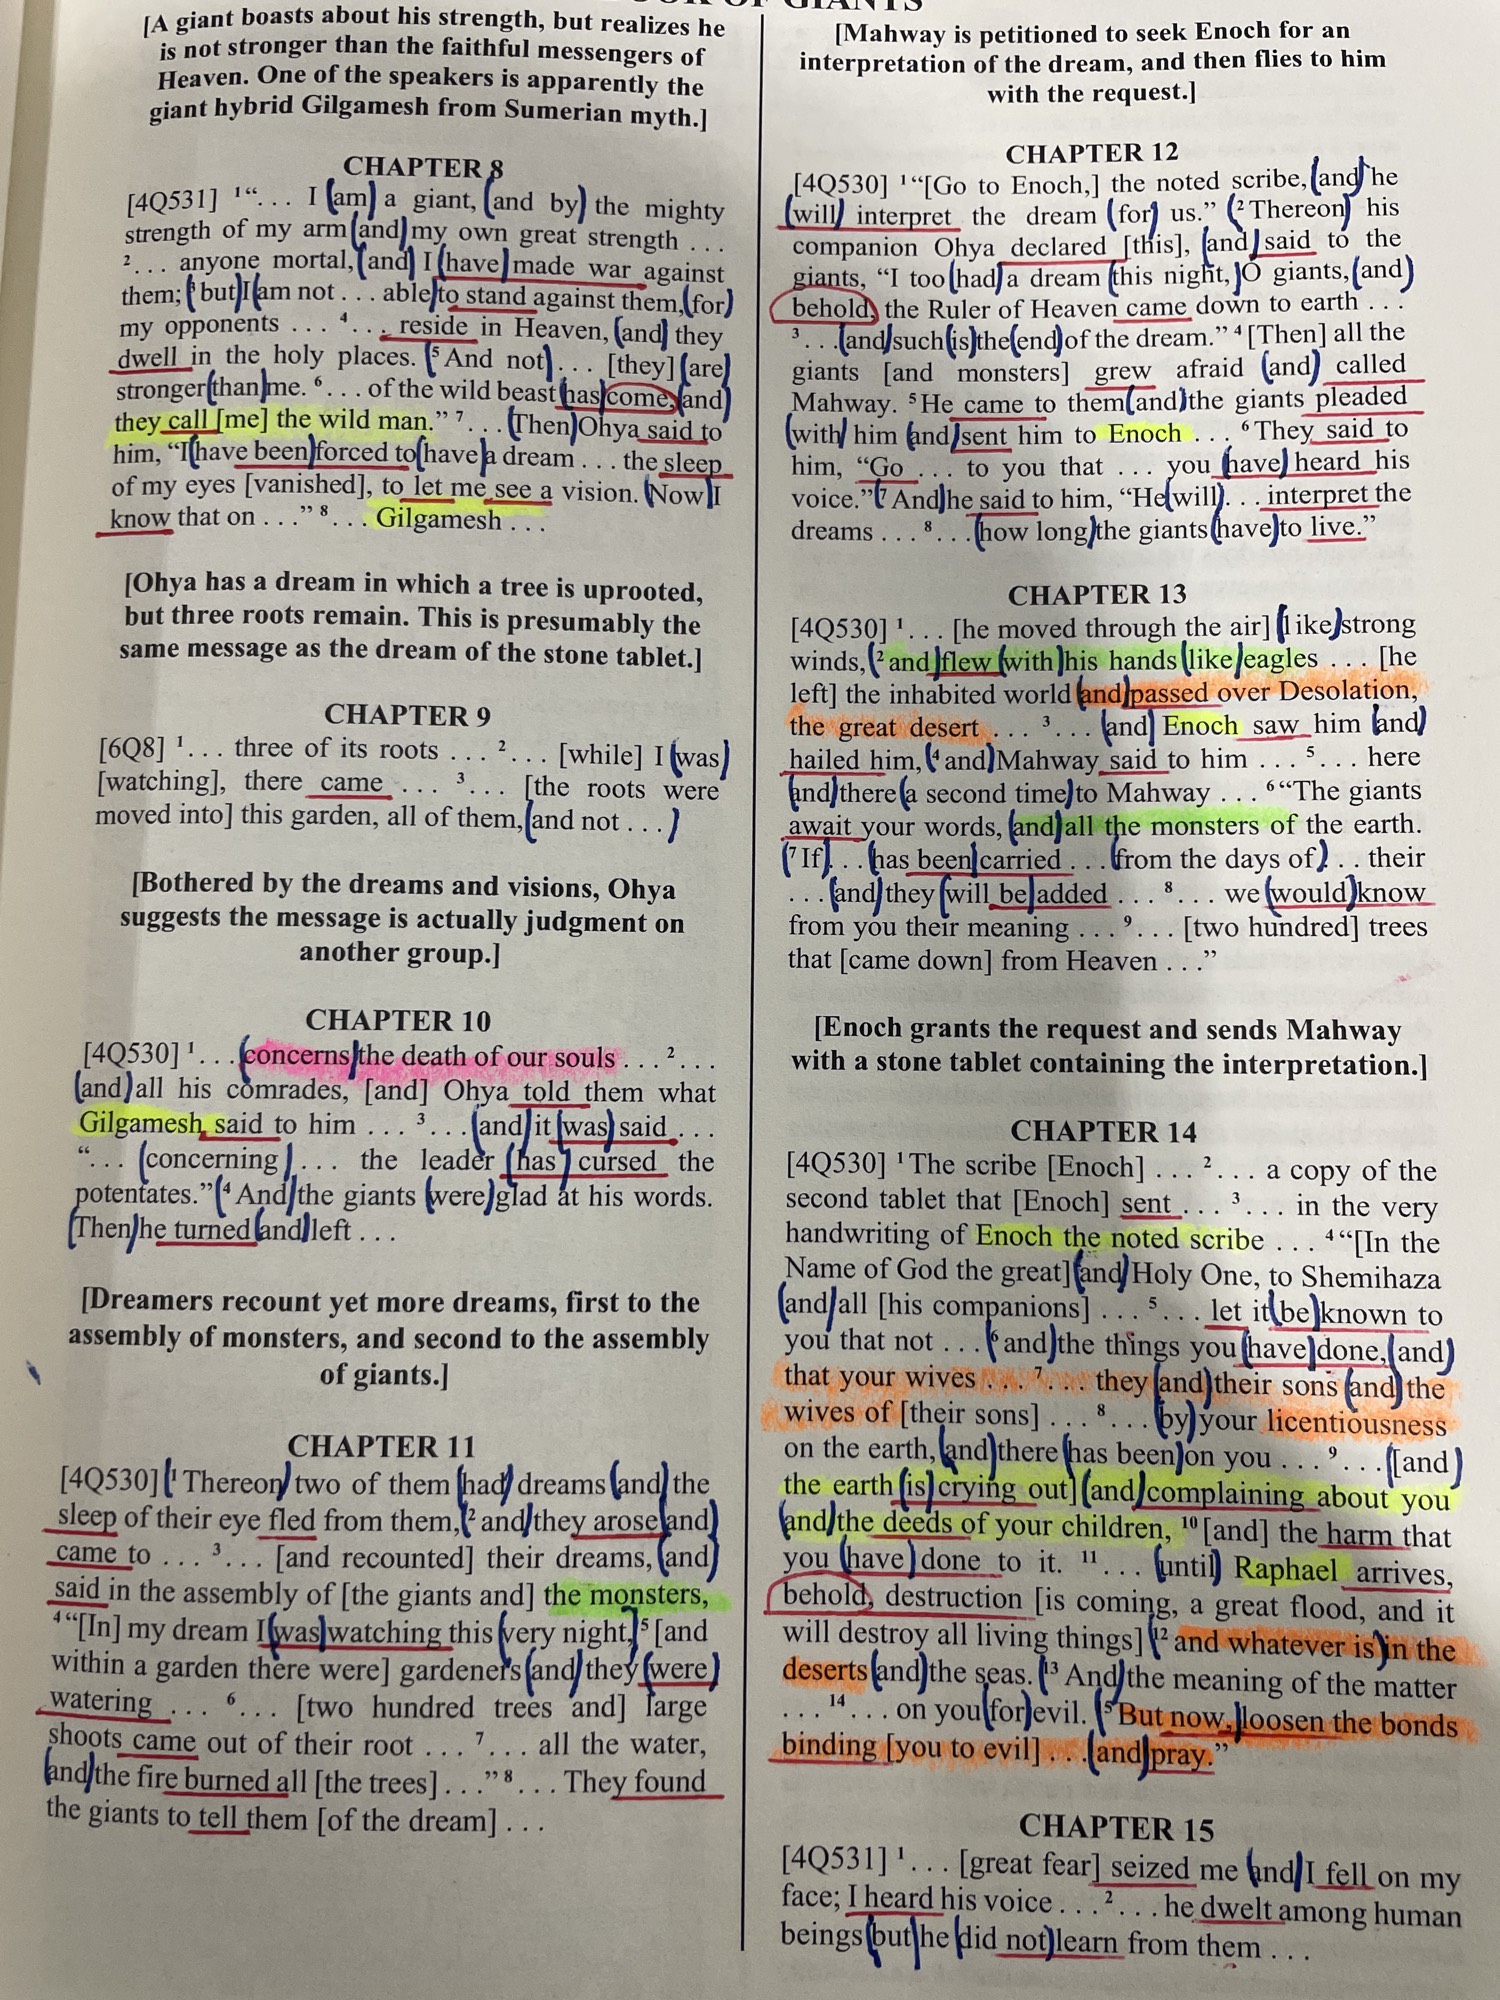 [A giant boasts about his strength, but realizes he
is not stronger than the faithful messengers of
Heaven. One of the speakers is apparently the
giant hybrid Gilgamesh from Sumerian myth.]
CHAPTER 8
[4Q531] ¹“. . . I am a giant, and by the mighty
strength of my arm and my own great strength . . .
². . . anyone mortal, and I have made war against
them; ³ but I am not . . . able to stand against them, for
my opponents . . . ⁴. . . reside in Heaven, and they
dwell in the holy places. ⁵ And not . . . [they] are
stronger than me. ⁶. . . of the wild beast has come, and
they call [me] the wild man.” ⁷. . . Then Ohya said to
him, “I have been forced to have a dream . . . the sleep
of my eyes [vanished], to let me see a vision. Now I
know that on . . .” ⁸. . . Gilgamesh . . .
[Ohya has a dream in which a tree is uprooted,
but three roots remain. This is presumably the
same message as the dream of the stone tablet.]
CHAPTER 9
[6Q8] ¹. . . three of its roots . . . ². . . [while] I was
[watching], there came . . . ³. . . [the roots were
moved into] this garden, all of them, and not . . .
[Bothered by the dreams and visions, Ohya
suggests the message is actually judgment on
another group.]
CHAPTER 10
[4Q530] ¹. . . concerns the death of our souls . . . ². . .
and all his comrades, [and] Ohya told them what
Gilgamesh said to him . . . ³. . . and it was said . . .
“. . . concerning . . . the leader has cursed the
potentates.” ⁴ And the giants were glad at his words.
Then he turned and left . . .
[Dreamers recount yet more dreams, first to the
assembly of monsters, and second to the assembly
of giants.]
CHAPTER 11
[4Q530] ¹ Thereon two of them had dreams and the
sleep of their eye fled from them, ² and they arose and
came to . . . ³. . . [and recounted] their dreams, and
said in the assembly of [the giants and] the monsters,
⁴ “[In] my dream I was watching this very night, ⁵ [and
within a garden there were] gardeners and they were
watering . . . ⁶. . . [two hundred trees and] large
shoots came out of their root . . . ⁷. . . all the water,
and the fire burned all [the trees] . . .” ⁸. . . They found
the giants to tell them [of the dream] . . .
[Mahway is petitioned to seek Enoch for an
interpretation of the dream, and then flies to him
with the request.]
CHAPTER 12
[4Q530] ¹“[Go to Enoch,] the noted scribe, and he
will interpret the dream for us.” ² Thereon his
companion Ohya declared [this], and said to the
giants, “I too had a dream this night, O giants, and
behold, the Ruler of Heaven came down to earth . . .
³. . . and such is the end of the dream.” ⁴ [Then] all the
giants [and monsters] grew afraid and called
Mahway. ⁵ He came to them and the giants pleaded
with him and sent him to Enoch . . . ⁶ They said to
him, “Go . . . to you that . . . you have heard his
voice.” ⁷ And he said to him, “He will . . . interpret the
dreams . . . ⁸. . . how long the giants have to live.”
CHAPTER 13
[4Q530] ¹. . . [he moved through the air] like strong
winds, ² and flew with his hands like eagles . . . [he
left] the inhabited world and passed over Desolation,
the great desert . . . ³. . . and Enoch saw him and
hailed him, ⁴ and Mahway said to him . . . ⁵. . . here
and there a second time to Mahway . . . ⁶“The giants
await your words, and all the monsters of the earth.
⁷ If . . . has been carried . . . from the days of . . . their
. . . and they will be added . . . ⁸. . . we would know
from you their meaning . . . ⁹. . . [two hundred] trees
that [came down] from Heaven . . .”
[Enoch grants the request and sends Mahway
with a stone tablet containing the interpretation.]
CHAPTER 14
[4Q530] ¹ The scribe [Enoch] . . . ². . . a copy of the
second tablet that [Enoch] sent . . . ³. . . in the very
handwriting of Enoch the noted scribe . . . ⁴ “[In the
Name of God the great] and Holy One, to Shemihaza
and all [his companions] . . . ⁵. . . let it be known to
you that not . . . ⁶ and the things you have done, and
that your wives . . . ⁷. . . they and their sons and the
wives of [their sons] . . . ⁸. . . by your licentiousness
on the earth, and there has been on you . . . ⁹. . . [and
the earth is crying out] and complaining about you
and the deeds of your children, ¹⁰ [and] the harm that
you have done to it. ¹¹. . . until Raphael arrives,
behold, destruction [is coming, a great flood, and it
will destroy all living things] ¹² and whatever is in the
deserts and the seas. ¹³ And the meaning of the matter
. . . ¹⁴. . . on you for evil. ⁵ But now, loosen the bonds
binding [you to evil] . . . and pray.”
CHAPTER 15
[4Q531] ¹. . . [great fear] seized me and I fell on my
face; I heard his voice . . . ². . . he dwelt among human
beings but he did not learn from them . . .